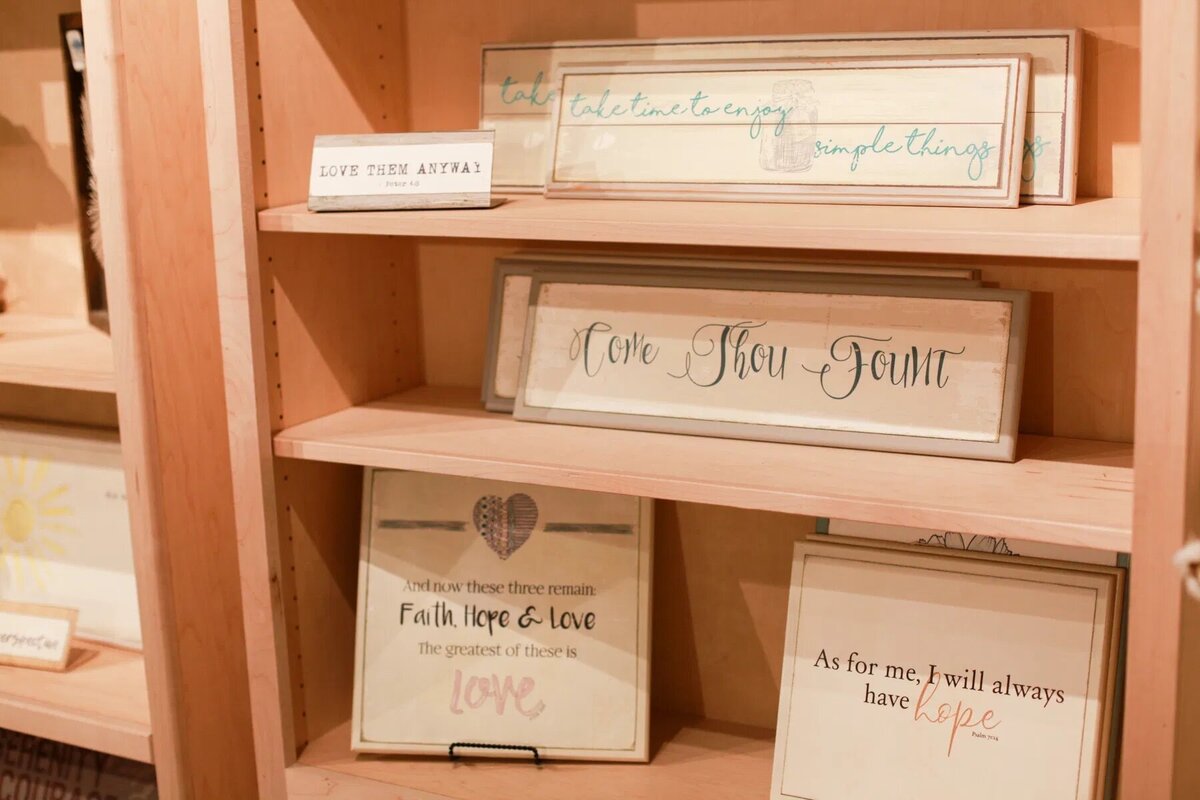 take
take time to enjoy
simple things
gs
LOVE THEM ANYWAY
Come Thou Fount
And now these three remain:
Faith, Hope & Love
The greatest of these is
love
As for me, I will always
have hope
Psalm 71:14
erspective
SERENITY
COURAGE